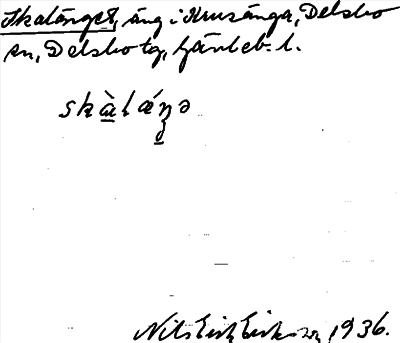 Skalänget, äng i Krusänga, Delsbo
sn, Delsbo tg, Gävleb. l.
skàláŋə
Nils Erik Eriksson, 1936.